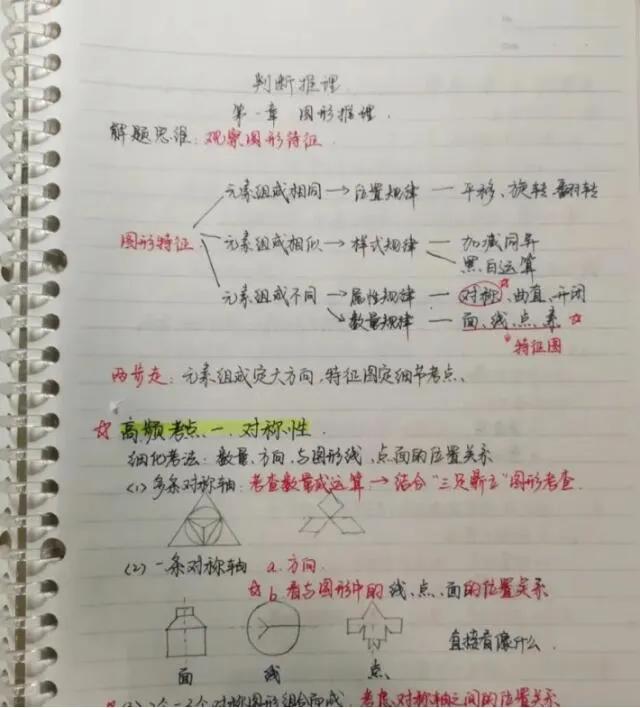 判断推理
第一章 图形推理.
解题思维:观察图形特征
元素组成相同→位置规律—平移、旋转、翻转
图形特征 元素组成相似→样式规律—加减同异
黑白运算
元素组成不同→属性规律—对称、曲直、开闭
数量规律—面、线、点、素
特征图
两步走:元素组成定大方向,特征图定细节考点、
高频考点一、对称性.
细化考法:数量、方向、与图形线、点面的位置关系
(1)多条对称轴:考查数量或运算→结合“三足鼎立”图形考查.
(2)一条对称轴 a.方向.
b.看与图形中的线、点、面的位置关系
直接看像什么.
面 线 点
考虑对称轴之间的位置关系